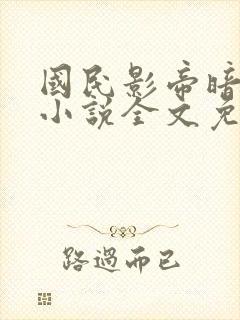 國民影帝暗
小說全文免
路過而已